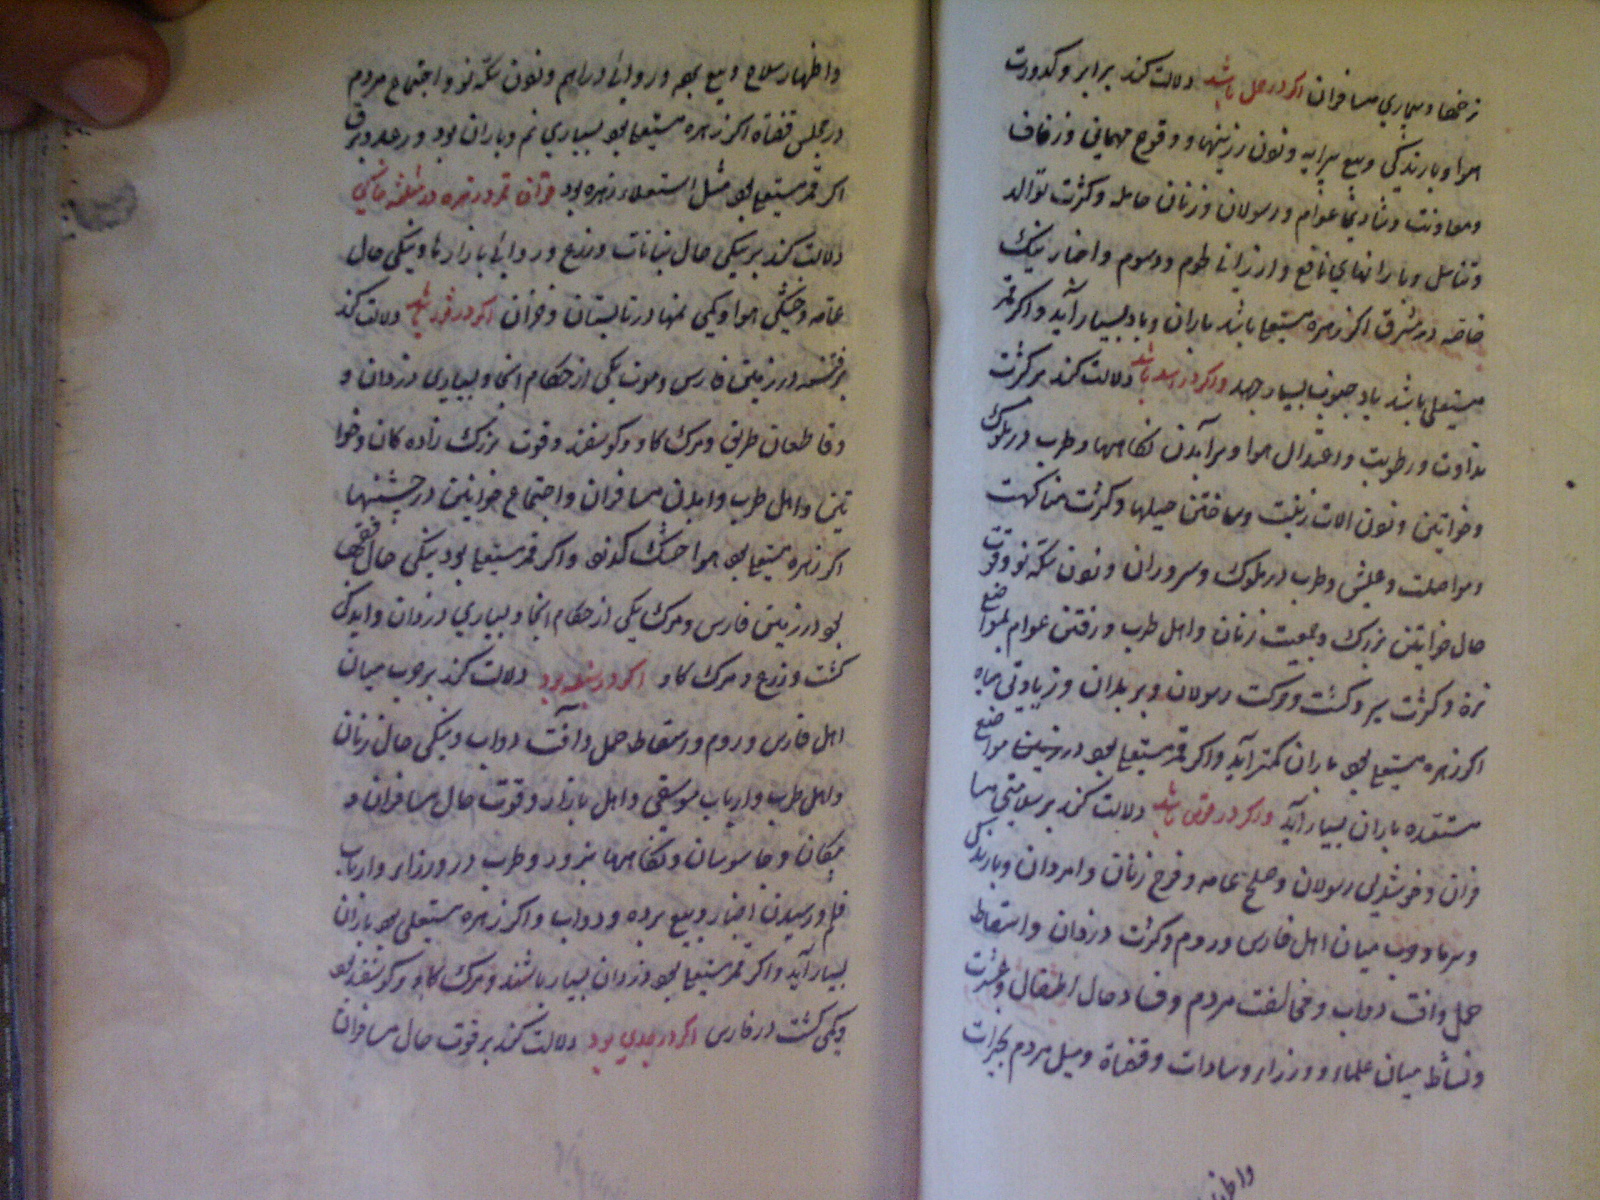 نرخها و بیماری مسافران اکر در حمل باشد دلالت کند برابر و کدورت
هوا و بارندکی و بیع پیرایه و نون رزینها و وقوع مهمانی و زفاف
و معاونت و شادی عوام و رسولان و زنان حامله و کثرت توالد
و تناسل و بارانهای نافع و ارزانی طوم و دسوم و اخبار نیک
خاصه در مشرق اکر زهره مستعلی باشد باران و باد بسیار آید و اکر قمر
مستعلی باشد باد جنوب بسیار جهد و اکر در اسد باشد دلالت کند بر کثرت
نداوت و رطوبت و اعتدال هوا و برآمدن نکاحها و طرب در ملوک
و خواتین و نون الات زینت و ساختن حیلها و کثرت مناکحت
و مواصلت و عیش و طرب در ملوک و سروران و نون سکه نو و قوت
حال خواتین بزرک و جمعیت زنان و اهل طرب و رفتن عوام بمواضع
نزه و کثرت سیر و کشت و حرکت رسولان و بریدان و زیادتی میاه
اکر زهره مستعلی بود باران کمتر آید و اکر قمر مستعلی بود در زمین مواضع
مستعده باران بسیار آید و اکر در قوس باشد دلالت کند بر سلامتی مسا
فران و خوشدلی رسولان و صلح عامه و فرح زنان و امردان و بارندکی
و سرما و حرب میان اهل فارس و روم و کثرت دزدان و اسقاط
حمل و آفت دواب و مخالفت مردم و فساد حال اطفال و عشرت
و نشاط میان علما و وزراء و سادات و قضاة و میل مردم بخیرات
و اظهار سلاح و بیع بود و روائی دراهم و نون سکه نو و اجتماع مردم
در مجلس قضاة اکر زهره مستعلی بود بسیاری نم و باران بود و رعد و برق
اکر قمر مستعلی بود مثل استعلاء زهره بود قران قمر و زهره در مثلثه خاکی
دلالت کند بر نیکی حال نباتات و زرع و روائی بازارها و نیکی حال
عامه و خشکی هوا و کمی نمها در تابستان و خزان اکر در ثور باشد دلالت کند
بر فتنه در زمین فارس و موت یکی از حکام آنجا و بسیاری دزدان و
و قاطعان طریق و مرک کاو و کوسفند و قوت بزرک زاده کان و خوا
تین و اهل طرب و آمدن مسافران و اجتماع خواتین در جشنها
اکر زهره مستعلی بود هوا خشک کذرد و اکر قمر مستعلی بود نیکی حال
بود در زمین فارس و مرک یکی از حکام آنجا و بسیاری دزدان و اندکی
کشت و زرع و مرک کاو اکر در سنبله بود دلالت کند بر حرب میان
اهل فارس و روم و اسقاط حمل و آفت دواب و نیکی حال زنان
و اهل طرب و ارباب موسیقی و اهل بازار و قوت حال مسافران و
پیکان و جاسوسان و نکاحها بزور و طرب در وزراء و ارباب
قلم و رسیدن اخبار و بیع برده و دواب و اکر زهره مستعلی بود باران
بسیار آید و اکر قمر مستعلی بود دزدان بسیار باشند و مرک کاو و کوسفند بود
و کمی کشت در فارس اکر در جدی بود دلالت کند بر قوت حال مسافران